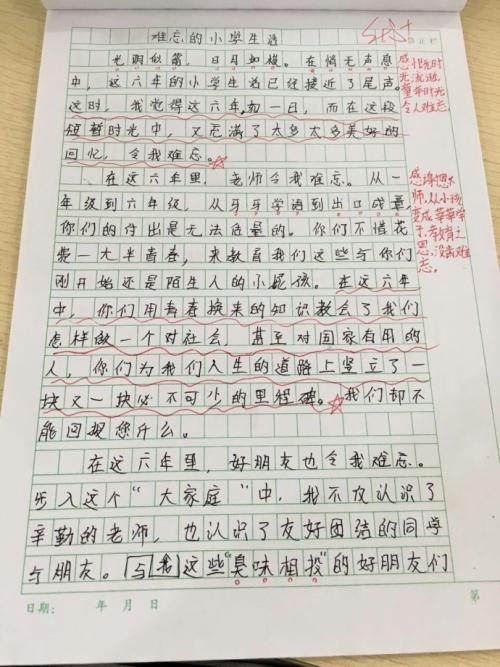 难忘的小学生活
光阴似箭，日月如梭。在悄无声息
中，这六年的小学生活已经接近了尾声。
这时，我觉得这六年，如一日，而在这段
短暂时光中，又充满了太多太多美好的
回忆，令我难忘。
在这六年里，老师令我难忘。从一
年级到六年级，从牙牙学语到出口成章，
你们的付出是无法估量的。你们不惜花
费一大半青春，来教育我们这些与你们
刚开始还是陌生人的小屁孩。在这六年
中，你们用青春换来的知识教会了我们
怎样做一个对社会，甚至对国家有用的
人，你们为我们人生的道路上竖立了一
块又一块必不可少的里程碑。我们却不
能回报您什么。
在这六年里，好朋友也令我难忘。
步入这个“大家庭”中，我不仅认识了
辛勤的老师，也认识了友好团结的同学
与朋友。与我这些“臭味相投”的好朋友们
感
光流逝，
童年时光
令人难忘。
感
师，从小孩
变成莘莘学
子，教育之
恩，没齿难
忘。
日期： 年 月 日
第